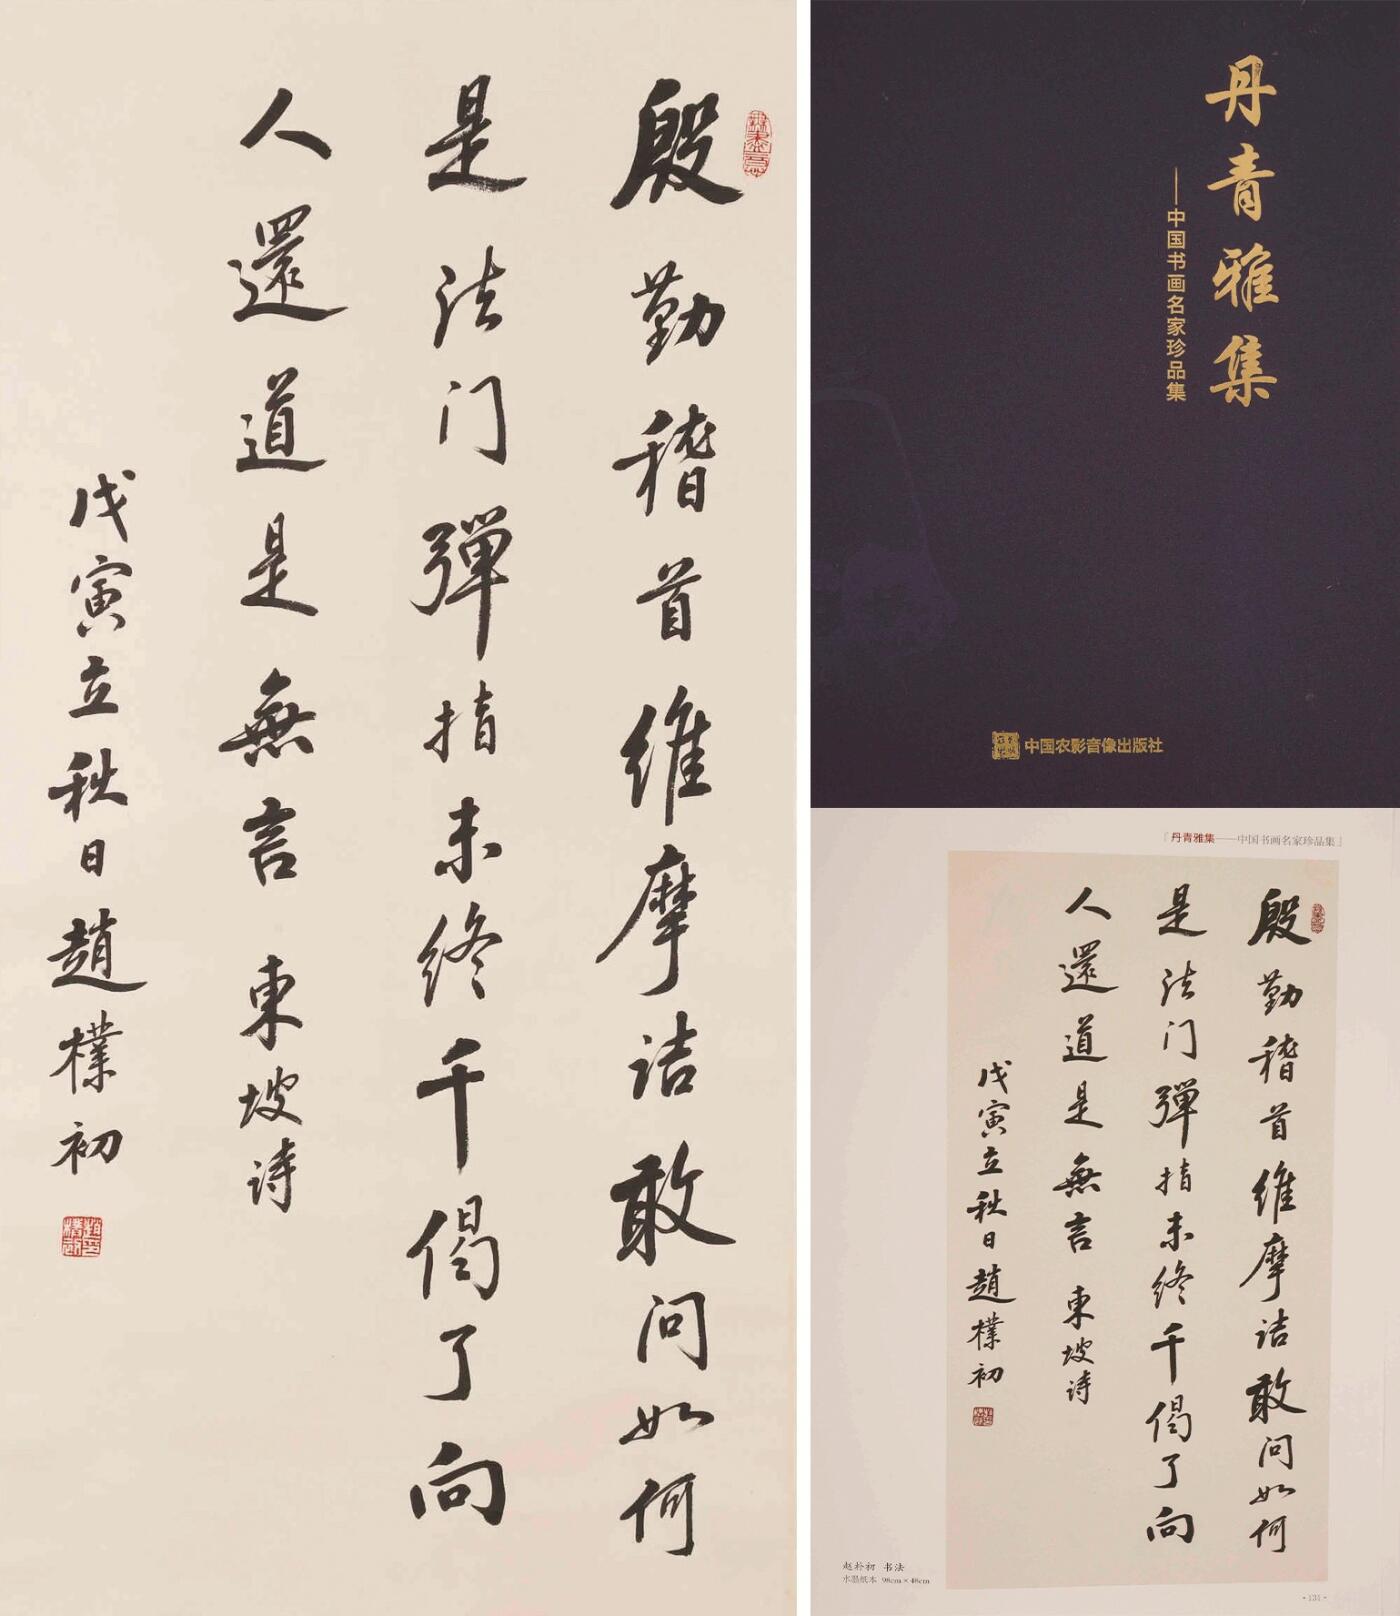 殷勤稽首维摩诘敢问如何
是法门彈指未终千偈了向
人還道是無言 東坡诗
戊寅立秋日趙樸初
趙樸初印
丹青雅集
——中国书画名家珍品集
中国农影音像出版社
「丹青雅集——中国书画名家珍品集」
殷勤稽首维摩诘敢问如何
是法门彈指未终千偈了向
人還道是無言 東坡诗
戊寅立秋日趙樸初
赵朴初 书法
水墨纸本 98cm×48cm
·131·